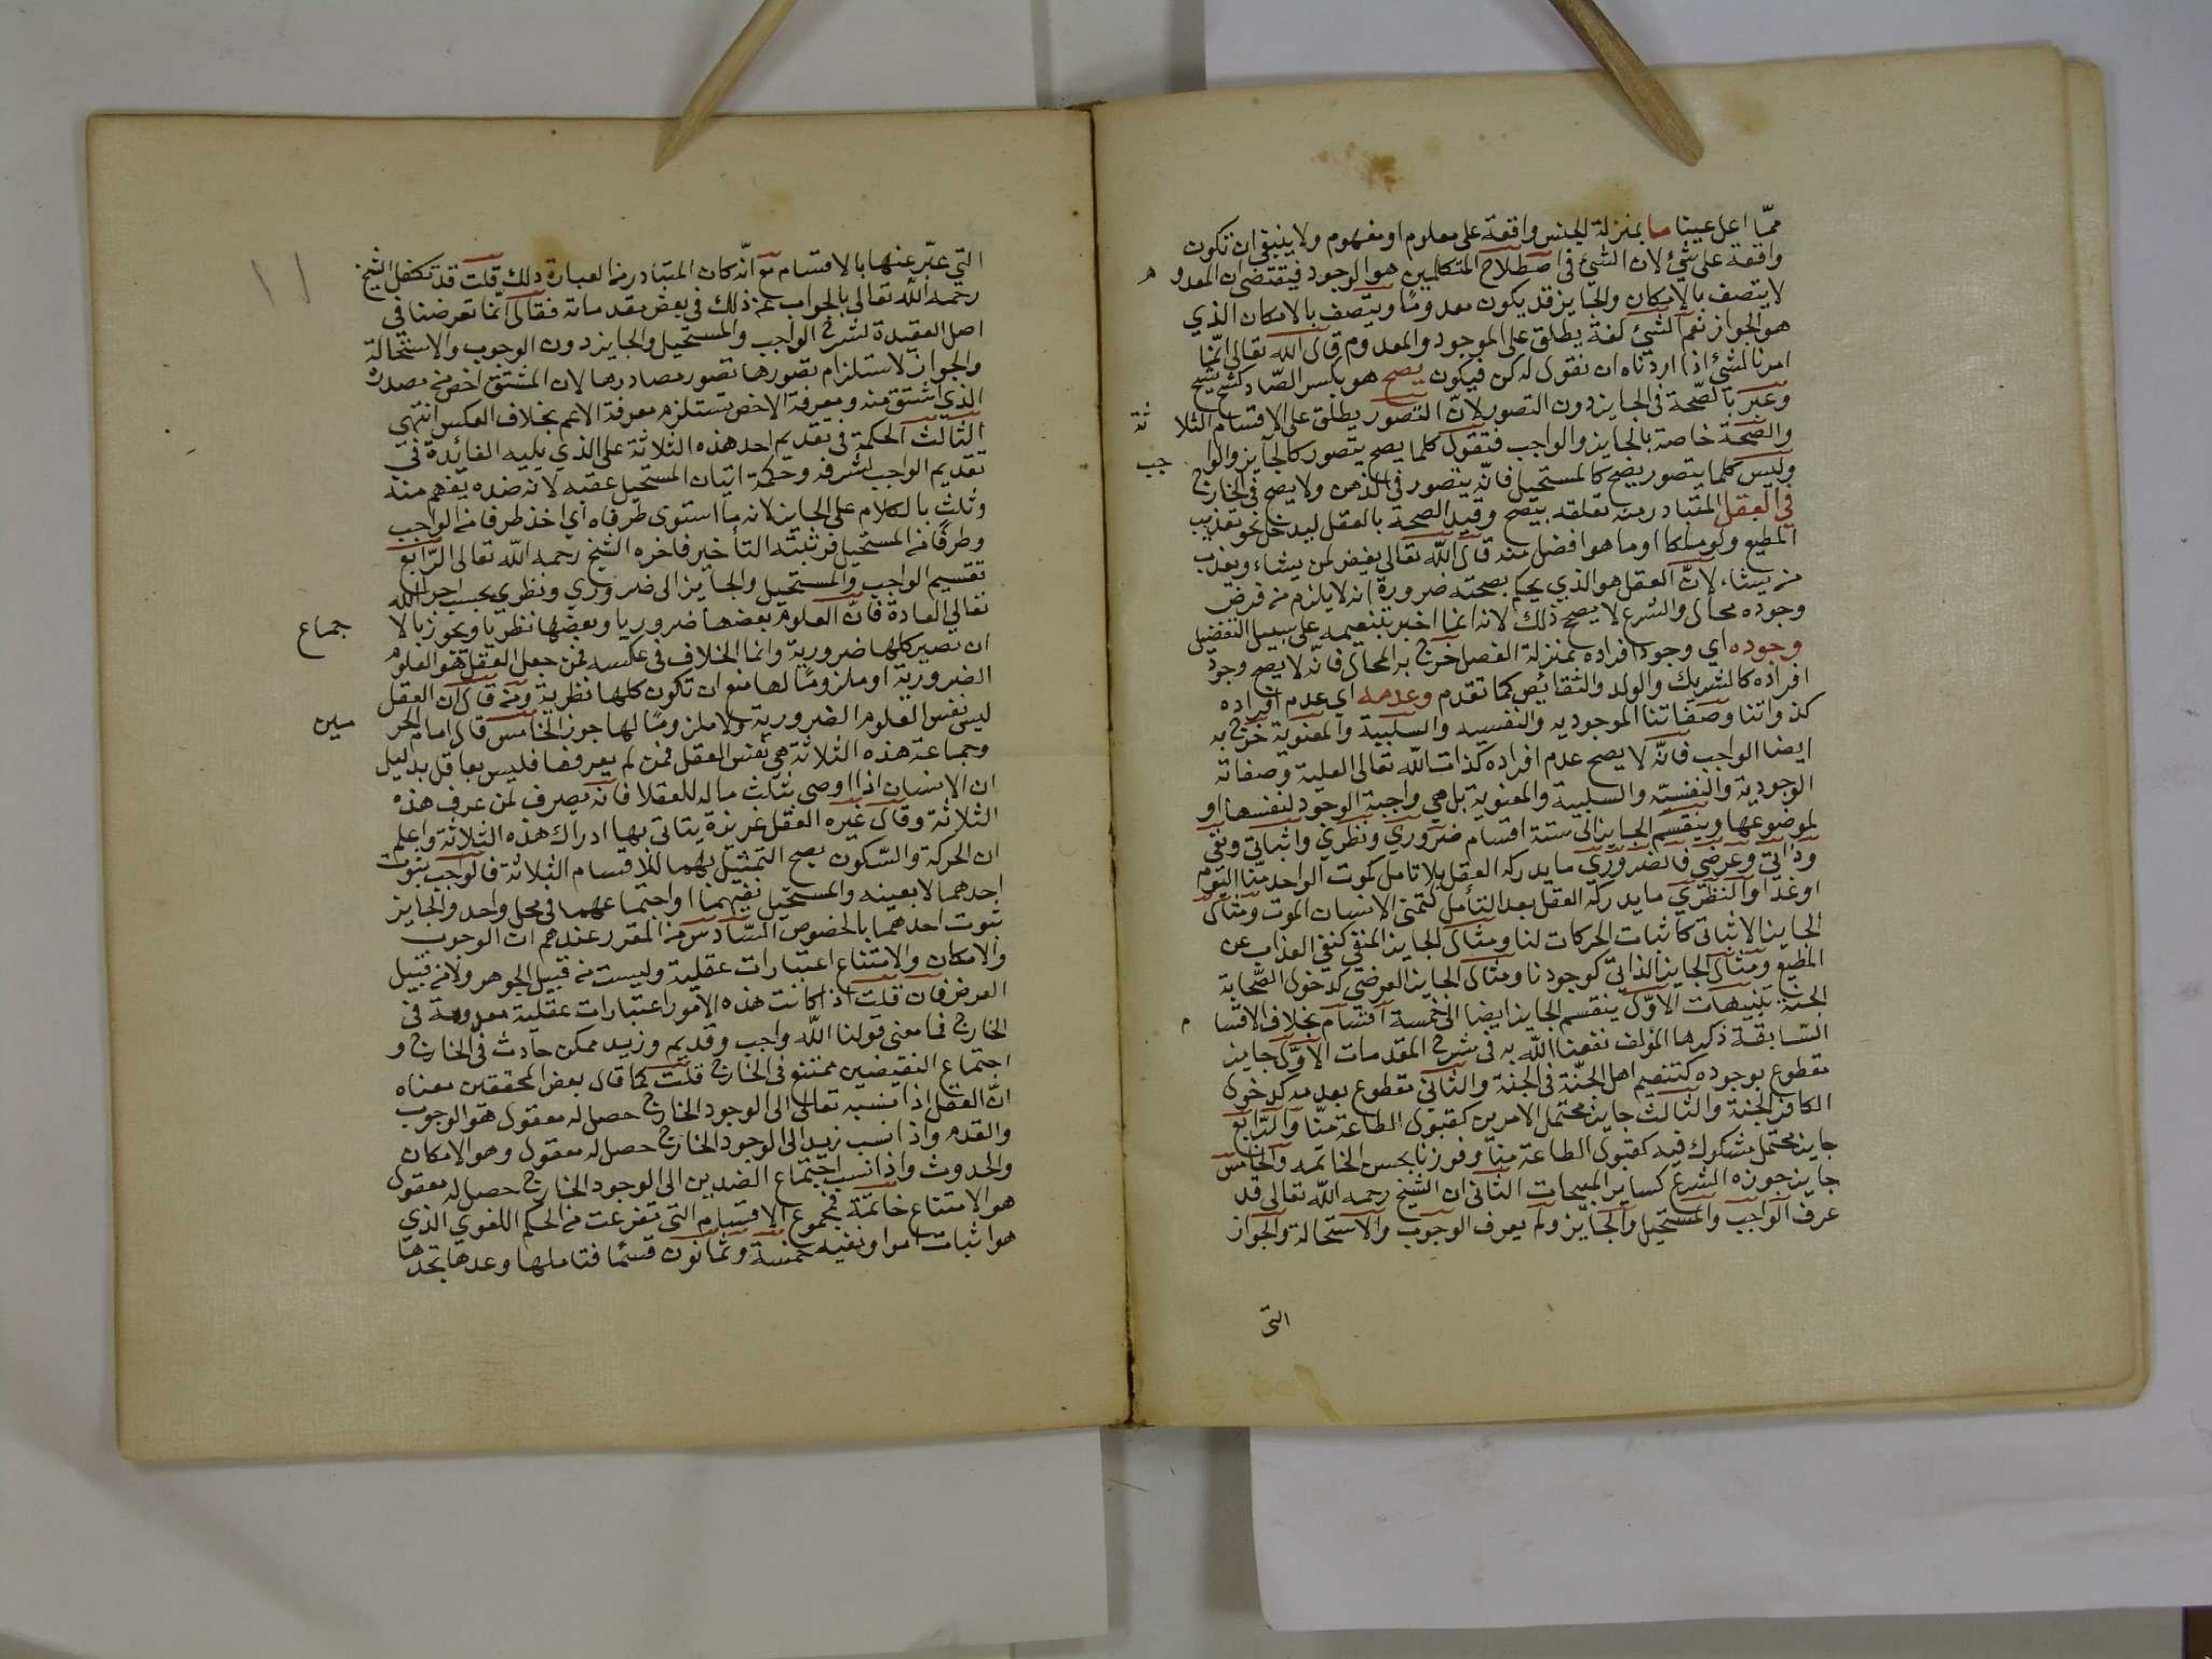 ممّا اعل عينا ما بمنزلة الجنس واقعة على معلوم او مفهوم ولا ينبغي ان تكون
واقعة على شيء لان الشيء في اصطلاح المتكلمين هو الوجود فيقتضي ان المعدو م
لا يتصف بالامكان والجايز قد يكون معدوما ويتصف بالامكان الذي
هو الجواز نعم الشيء لغة يطلق على الموجود والمعدوم قال الله تعالى انّما
امرنا لشيء اذا اردناه ان نقول له كن فيكون يصح هو بكسر الصّاد كشح يشح
وعبّر بالصّحة في الجايز دون التصور لانّ التصور يطلق على الاقسام الثلا ثة
والصّحة خاصة بالجايز والواجب فتقول كلما يصح يتصور كالجايز والوا جب
وليس كلما يتصور يصح كالمستحيل فانّه يتصور في الذهن ولا يصح في الخارج
في العقل المتبادر منه تعلقه بيصح وقيد الصحة بالعقل ليدخل نحو تعذيب
المطيع ولو ملكا او ما هو افضل منه قال الله تعالى يغفر لمن يشاء ويعذب
من يشاء لانّ العقل هو الذي يحكم بصحته ضرورة انه لا يلزم من فرض
وجوده محال والشرع لا يصح ذلك لانه انما اخبر بتنعيمه على سبيل التفضيل
وجوده اي وجود افراده بمنزلة الفصل خرج به المحال فانّه لا يصح وجود
افراده كالشريك والولد والنقائص كما تقدم وعدمه اي عدم افراده
كذواتنا وصفاتنا الموجوديه والنفسيه والسلبية والمعنوية خرج به
ايضا الواجب فانّه لا يصح عدم افراده كذات الله تعالى العلية وصفاته
الوجودية والنفسيّه والسلبية والمعنوية بل هي واجبة الوجود لنفسها او
لموضوعها وينقسم الجايز الى ستة اقسام ضروري ونظري واثباتي ونفي
وذاتي وعرضي فالضروري ما يدركه العقل بلا تامل كموت الواحد منّا اليوم
او غدا والنظري ما يدركه العقل بعد التأمل كتمني الانسان الموت ومثال
الجايز الاثباتي كاثبات الحركات لنا ومثال الجايز المنفي كنفي العذاب عن
المطيع ومثال الجايز الذاتي كوجودنا ومثال الجايز العرضي كدخول الصّحابة
الجنة تنبيهات الاوّل ينقسم الجايز ايضا الى خمسة اقسام بخلاف الاقسا م
السّابقة ذكرها المؤلف نفعنا الله به في شرح المقدمات الاوّل جايز
مقطوع بوجوده كتنعيم اهل الجنّة في الجنة والثاني مقطوع بعدمه كدخول
الكافر الجنة والثالث جايز محتمل الامرين كقبول الطاعة منّا والرّابع
جايز محتمل مشكوك فيه كقبول الطاعة منّا وفوزنا بحسن الخاتمه والخامس
جايز جوزه الشرع كساير المبيحات الثاني ان الشيخ رحمه الله تعالى قد
عرف الواجب والمستحيل والجايز ولم يعرف الوجوب والاستحالة والجواز
التي
١١
التي عبّر عنها بالاقسام مع انّه كان المتبادر من العبارة ذلك قلت قد تكفل الشيخ
رحمه الله تعالى بالجواب عن ذلك في بعض مقدماته فقال انّما تعرضنا في
اصل العقيدة لشرح الواجب والمستحيل والجايز دون الوجوب والاستحالة
والجواز لاستلزام تصورها تصور مصادرها لان المشتق اخص من مصدره
الذي اشتق منه ومعرفة الاخص تستلزم معرفة الاعم بخلاف العكس انتهى
الثالث الحكمة في تقديم احد هذه الثلاثة على الذي يليه الفائدة في
تقديم الواجب لشرفه وحكمة اتيان المستحيل عقبه لانه ضده يفهم منه
وثلث بالكلام على الجايز لانه ما استوى طرفاه اي اخذ طرفا من الواجب
وطرفا من المستحيل فرتبته التأخير فاخره الشيخ رحمه الله تعالى الرّابع
تقسيم الواجب والمستحيل والجايز الى ضروري ونظري بحسب اجرا الله
تعالى العادة فانّ العلوم بعضها ضروريا وبعضها نظريا ويجوز بالا جماع
ان تصير كلها ضرورية وانما الخلاف في عكسه فمن جعل العقل هو العلوم
الضرورية او ملزوما لها منع ان تكون كلها نظرية ومن قال ان العقل
ليس نفس العلوم الضرورية ولا ملزوما لها جوز الخامس قال امام الحر مين
وجماعة هذه الثلاثة هي نفس العقل فمن لم يعرفها فليس بعاقل بدليل
ان الانسان اذا اوصى بثلث ماله للعقلا فانه يصرف لمن عرف هذه
الثلاثة وقال غيره العقل غريزة يتاتى بها ادراك هذه الثلاثة واعلم
ان الحركة والسّكون يصح التمثيل بهما للاقسام الثلاثة فالواجب ثبوت
احدهما لا بعينه والمستحيل نفيهما او اجتماعهما في محل واحد والجايز
ثبوت احدهما بالخصوص السّادس من المقرر عندهم ان الوجوب
والامكان والامتناع اعتبارات عقلية وليست من قبيل الجوهر ولا من قبيل
العرض فان قلت اذا كانت هذه الامور اعتبارات عقلية معدومة في
الخارج فما معنى قولنا الله واجب وقديم وزيد ممكن حادث في الخارج و
اجتماع النقيضين ممتنع في الخارج قلت كما قال بعض المحققين معناه
انّ العقل اذا نسبه تعالى الى الوجود الخارج حصل له معقول هو الوجوب
والقدم واذا نسب زيد الى الوجود الخارج حصل له معقول وهو الامكان
والحدوث واذا نسب اجتماع الضدين الى الوجود الخارج حصل له معقول
هو الامتناع خاتمة فمجموع الاقسام التي تفرعت من الحكم اللغوي الذي
هو اثبات امر او نفيه خمسة وثمانون قسما فتاملها وعدها تجدها